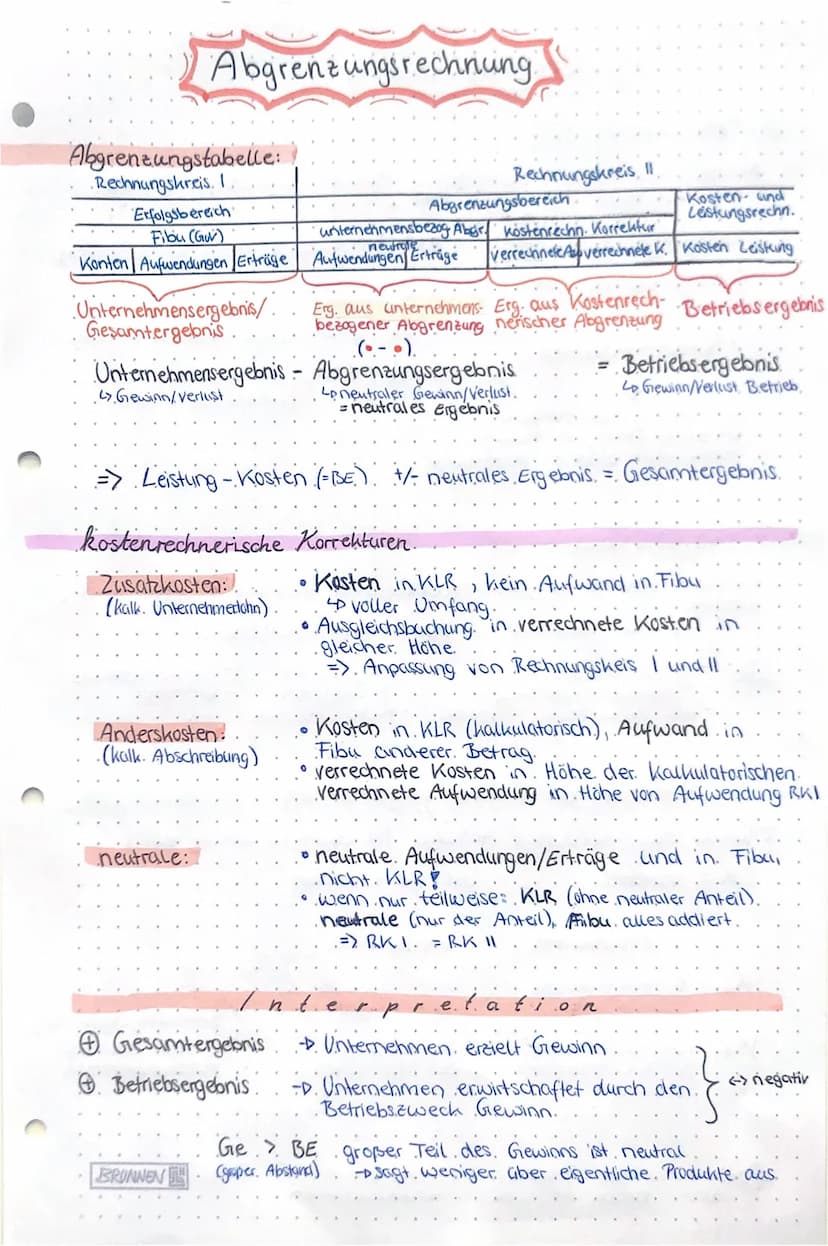 Abgrenzungsrechnung
Abgrenzungstabelle:
Rechnungskreis I
Rechnungskreis II
Erfolgsbereich
Abgrenzungsbereich
Kosten- und
Leistungsrechn.
Fibu (GuV)
unternehmensbezog Abgr.
Kostenrechn. Korrektur
Konten Aufwendungen Erträge
neutrale
Aufwendungen Erträge
verrechnete A. verrechnete K.
Kosten Leistung
Unternehmensergebnis/
Gesamtergebnis
Erg. aus unternehmens-
bezogener Abgrenzung
Erg. aus Kostenrech-
nerischer Abgrenzung
Betriebsergebnis
(• - •)
Unternehmensergebnis - Abgrenzungsergebnis = Betriebsergebnis
↳ Gewinn/Verlust
↳ neutraler Gewinn/Verlust
= neutrales Ergebnis
↳ Gewinn/Verlust Betrieb
=> Leistung - Kosten (=BE) +/- neutrales Ergebnis = Gesamtergebnis
kostenrechnerische Korrekturen
Zusatzkosten:
(kalk. Unternehmerlohn)
• Kosten in KLR, kein Aufwand in Fibu
↳ voller Umfang
• Ausgleichsbuchung in verrechnete Kosten in
gleicher Höhe
=> Anpassung von Rechnungskeis I und II
Anderskosten:
(kalk. Abschreibung)
• Kosten in KLR (kalkulatorisch), Aufwand in
Fibu anderer Betrag
• verrechnete Kosten in Höhe der Kalkulatorischen
verrechnete Aufwendung in Höhe von Aufwendung RK I
neutrale:
• neutrale Aufwendungen/Erträge und in Fibu,
nicht KLR!
• wenn nur teilweise: KLR (ohne neutraler Anteil)
neutrale (nur der Anteil), Fibu alles addiert
=> RK I = RK II
Interpretation
⊕ Gesamtergebnis → Unternehmen erzielt Gewinn
⊕ Betriebsergebnis → Unternehmen erwirtschaftet durch den
Betriebszweck Gewinn
<-> negativ
Ge > BE großer Teil des Gewinns ist neutral
(großer Abstand) → sagt weniger über eigentliche Produkte aus
BRUNNEN